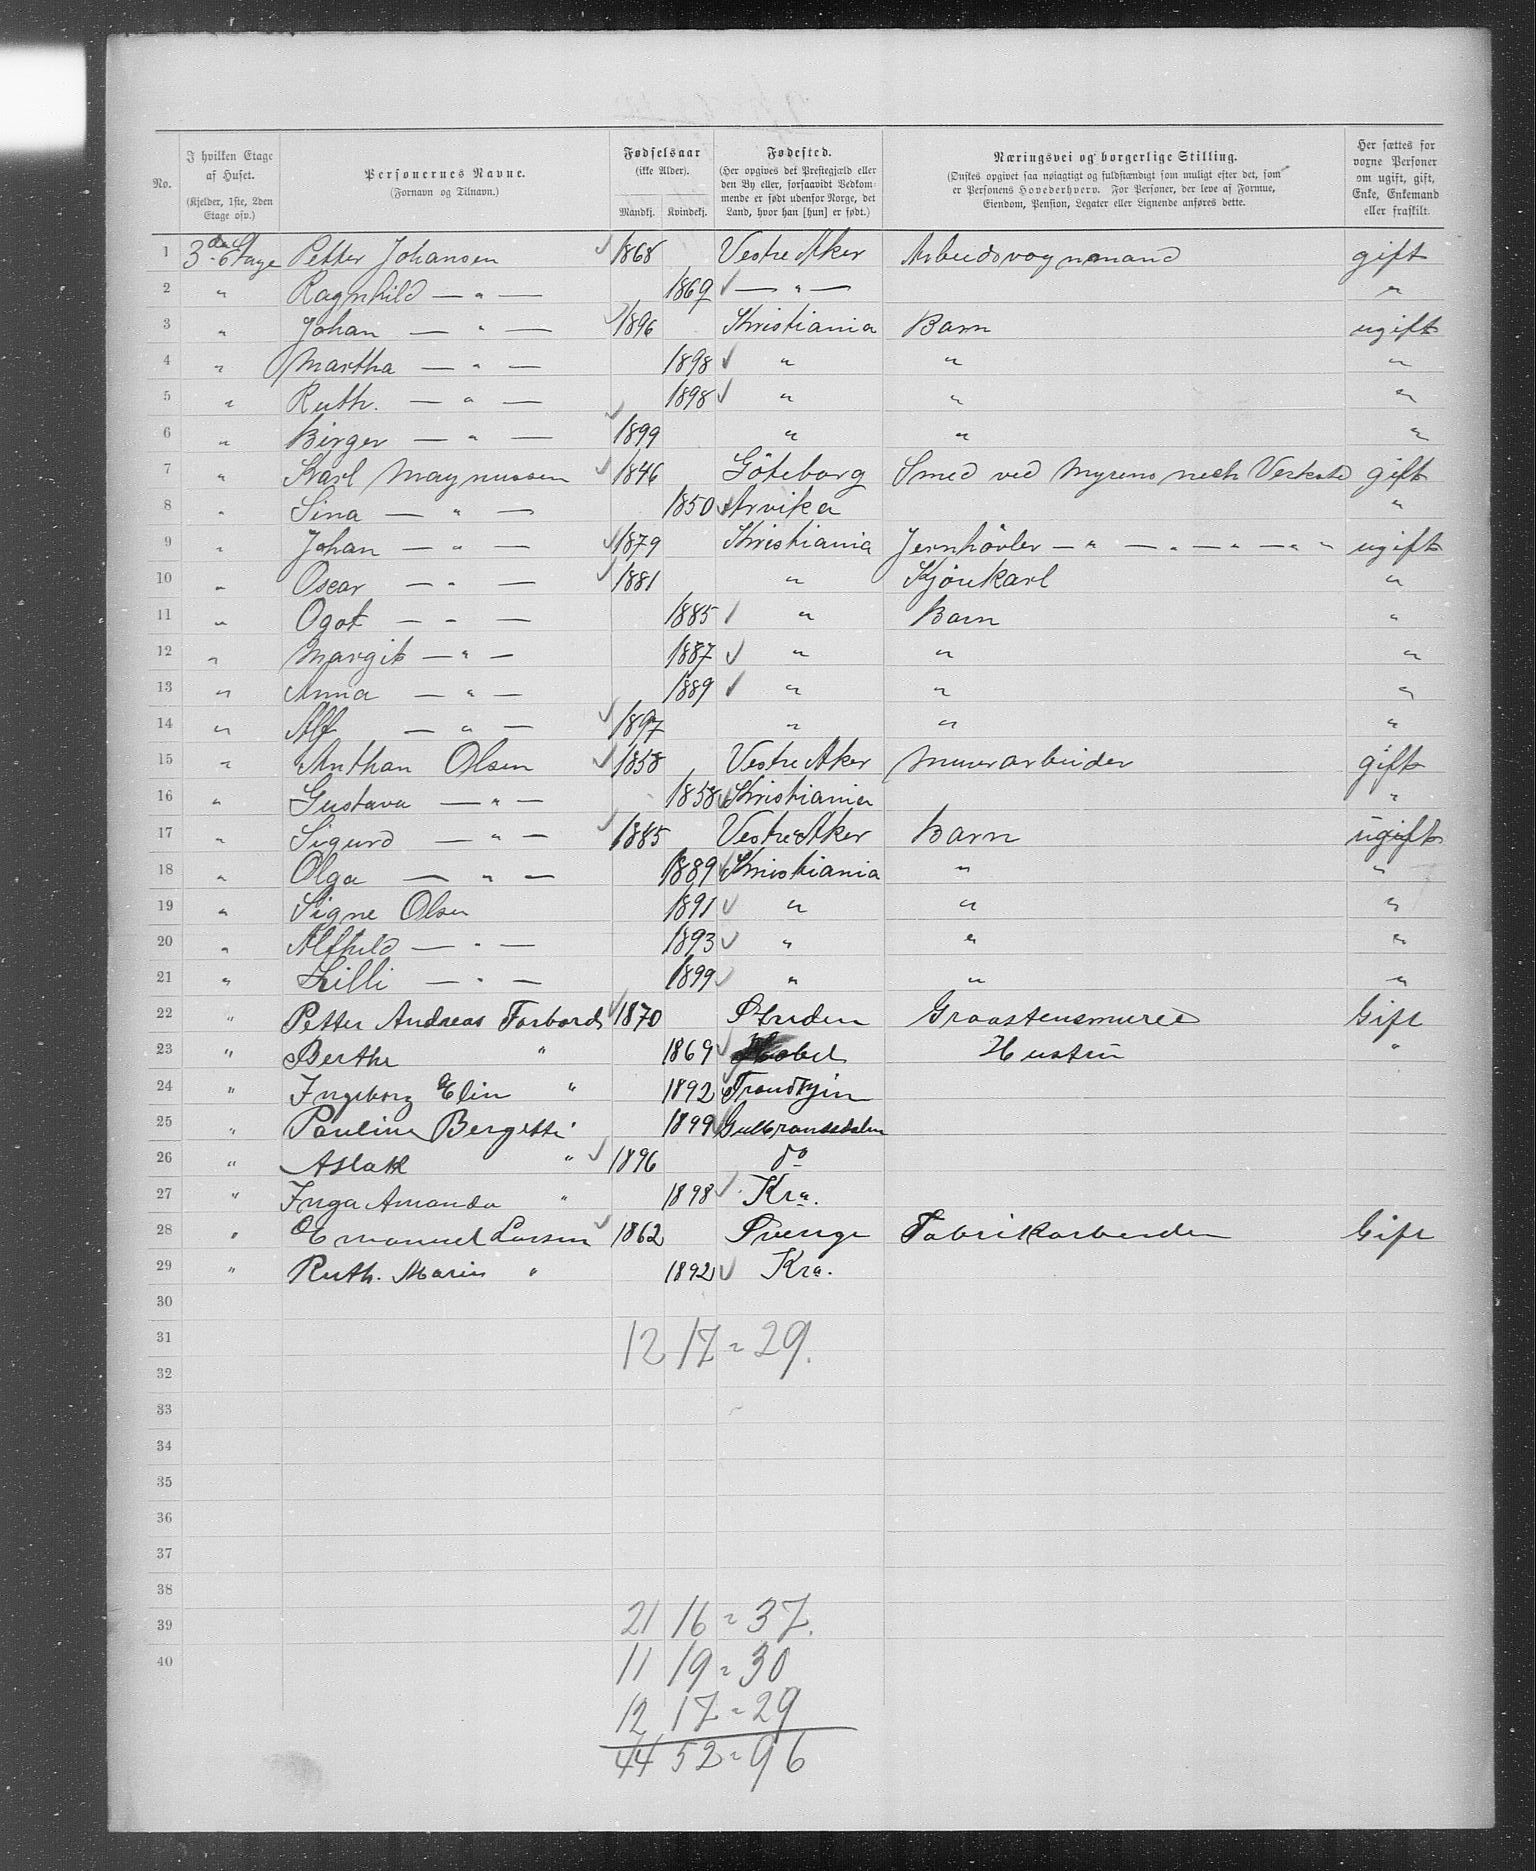 No.	I hvilken Etage af Huset. (Kjelder, 1ste, 2den Etage osv.)	Personernes Navne. (Fornavn og Tilnavn.)	Fødselsaar (ikke Alder). Mandkj. Kvindekj.	Fødested. (Her opgives det Prestegjæld eller den By eller, forsaavidt Vedkommende er født udenfor Norge, det Land, hvor han [hun] er født.)	Næringsvei og borgerlige Stilling. (Ønskes opgivet saa nøiagtigt og fuldstændigt som muligt efter det, som er Personens Hovederhverv. For Personer, der leve af Formue, Eiendom, Pension, Legater eller Lignende anføres dette.)	Her sættes for voxne Personer om ugift, gift, Enke, Enkemand eller fraskilt.
1 3de Etage Petter Johansen 1868 Vestre Aker Arbeidsvognmand gift
2 " Ragnhild — " — 1869 — " — "
3 " Johan — " — 1896 Kristiania Barn ugift
4 " Martha — " — 1898 " " "
5 " Ruth. — " — 1898 " " "
6 " Birger — " — 1899 " " "
7 " Karl Magnussen 1846 Göteborg Smed ved Myrens mech Verksted gift
8 " Lina — " — 1850 Arvika "
9 " Johan — " — 1879 Kristiania Jernhövler — " — " — " — " " ugift
10 " Oscar — " — 1881 " Kjörekarl "
11 " Ogot — " — 1885 " Barn "
12 " Margit — " — 1887 " " "
13 " Anna — " — 1889 " " "
14 " Alf — " — 1897 " " "
15 " Anthan Olsen 1858 Vestre Aker Murerarbeider gift
16 " Gustava — " — 1858 Kristiania "
17 " Sigurd — " — 1885 Vestre Aker Barn ugift
18 " Olga — " — 1889 Kristiania " "
19 " Signe Olsen 1891 " " "
20 " Alfhild — " — 1893 " " "
21 " Lilli — " — 1899 " " "
22 " Petter Andreas Forbord 1870 Graastensmurer Gift
23 " Berthe " 1869 Hustru "
24 " Ingeborg Elin " 1892 Trondhjem
25 " Pauline Bergitte " 1899 Gulbransdalen
26 " Aslak " 1896 do
27 " Inga Amanda " 1898 Kra.
28 " Emanuel Larsen 1862 Sverige Fabrikarbeider Gift
29 " Ruth. Marie " 1892 Kra.
30
31 12 17 = 29.
32
33
34
35
36
37
38
39 21 16 = 37.
40 11 19 = 30
12 17 = 29
44 52 = 96